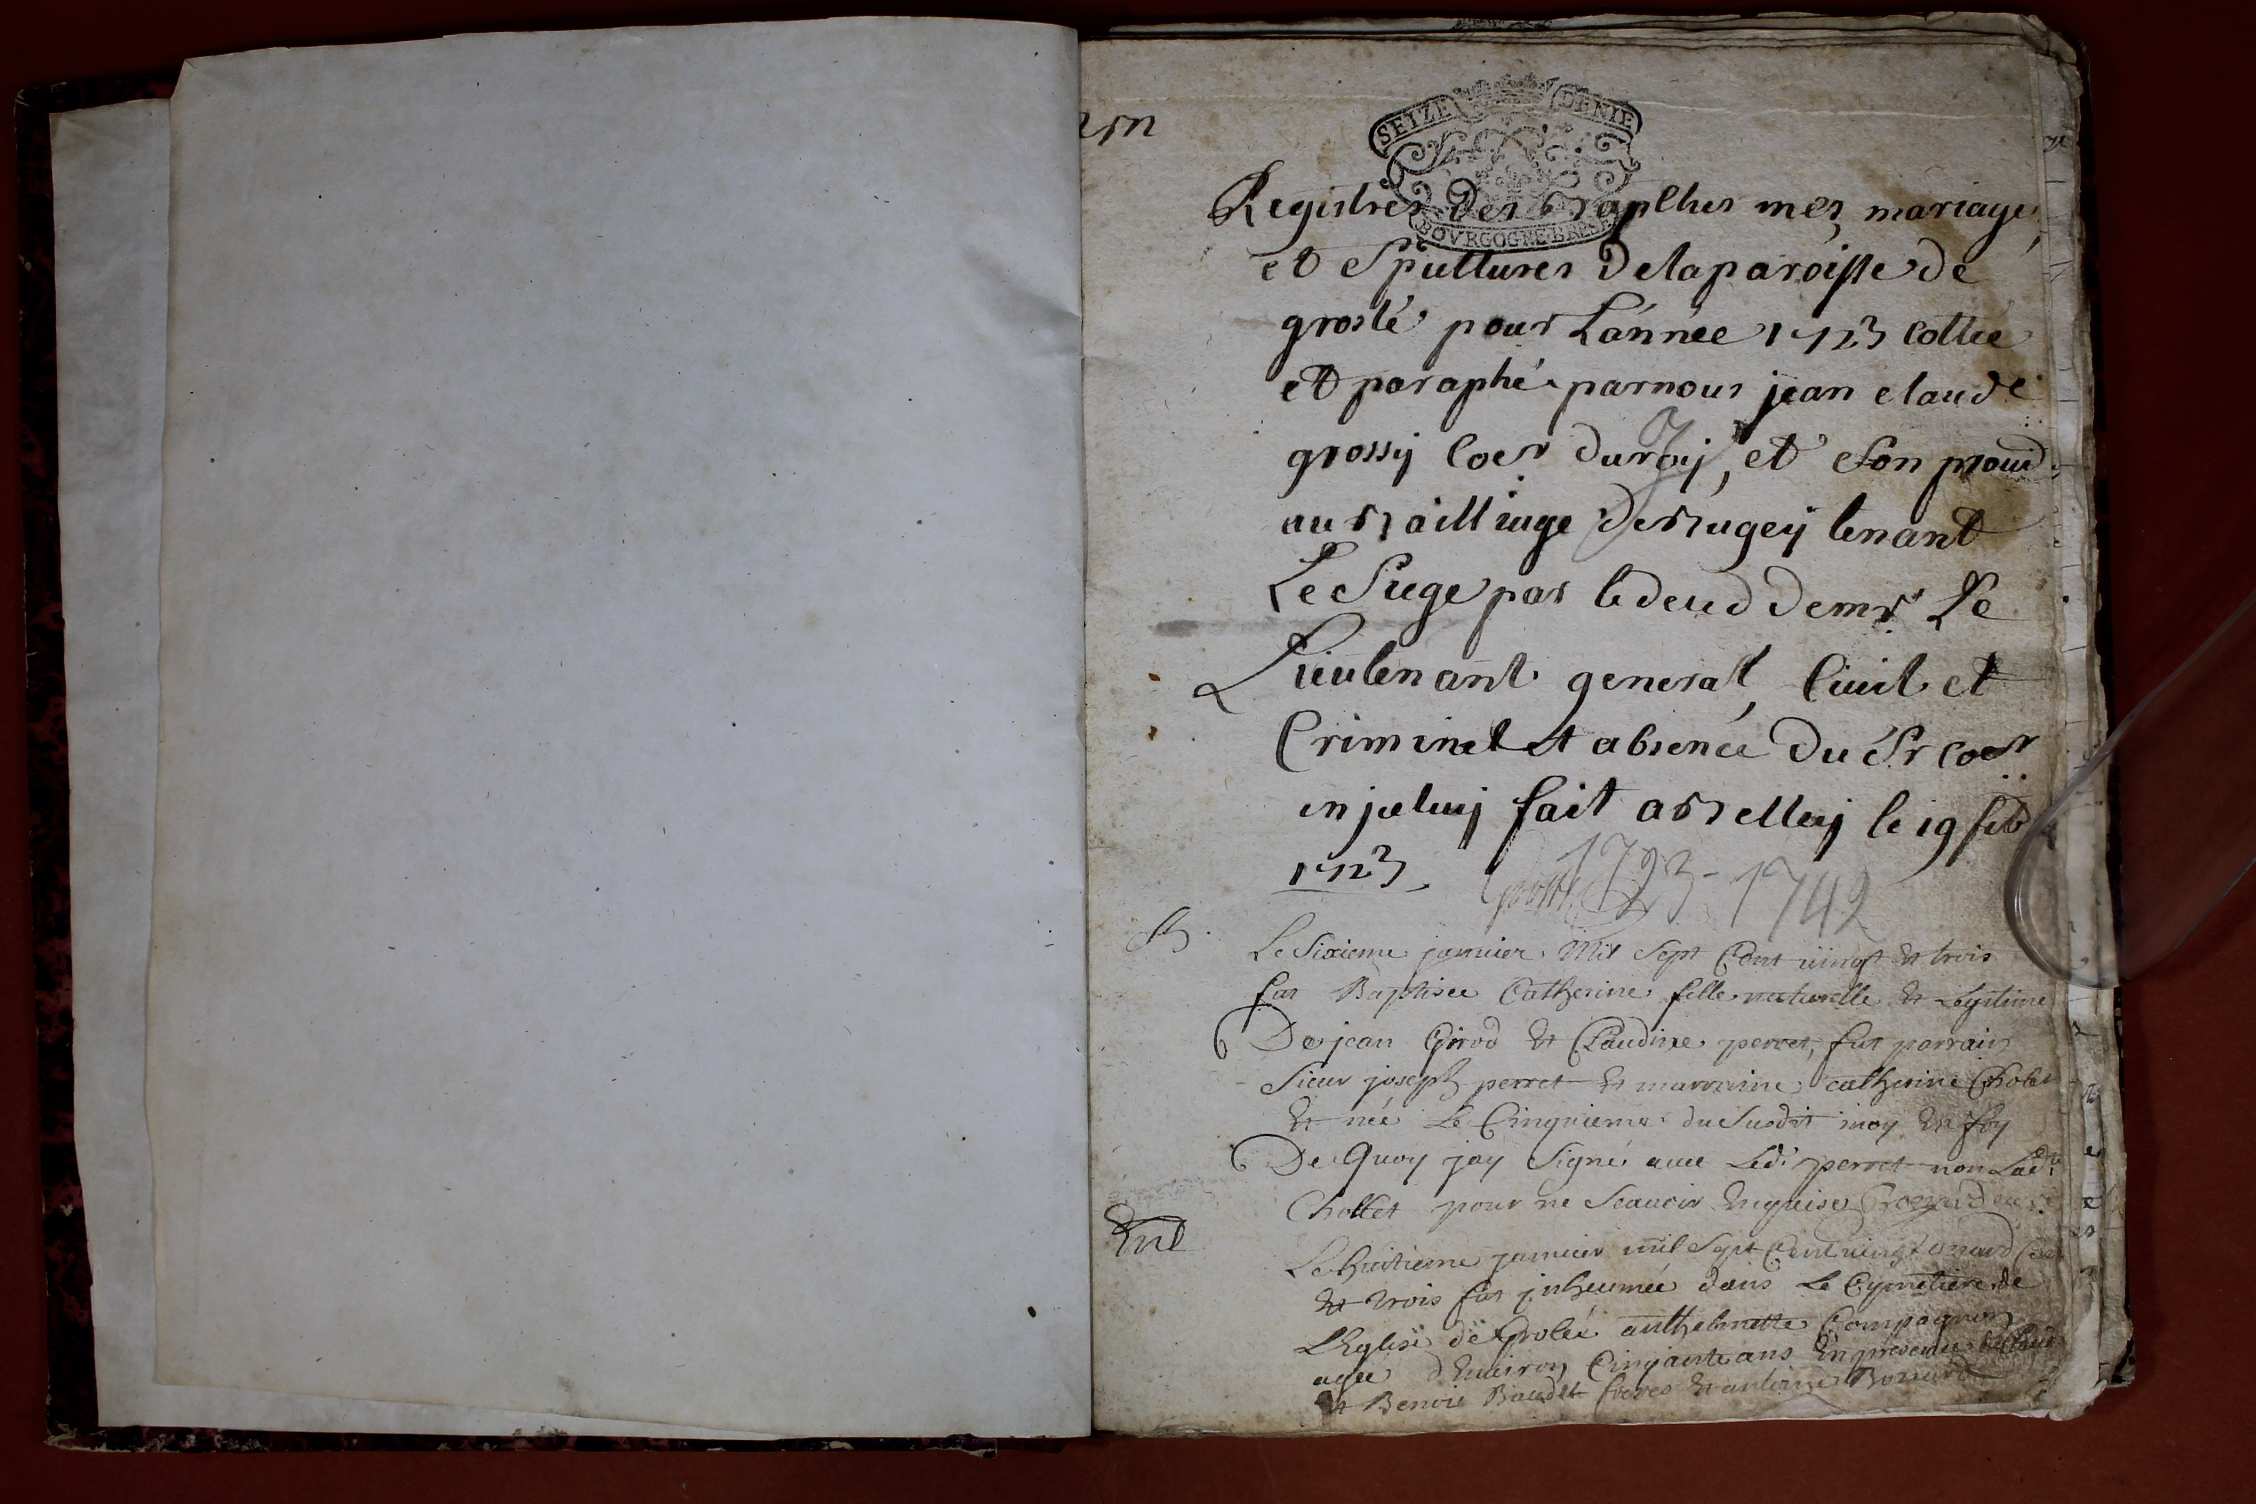 SEIZE DENIE
BOVRGOGNE BRESSE
Registres des Bapthes mes mariages
et Spultures de la paroisse de
groslé pour L'année 1723 Cottée
et paraphé par nous jean claude
grossy Coer du roy, et son
au Bailliage de Bugey tenant
Le Siege par de mr Le
Lieutenant general, Ciuil et
Criminel et absence du Sr Coer
fait a Belley le 19 feb
1723
1723-1742
B.
Le Sixieme januier Mil Sept Cent uingt et trois
fut Baptisee Catherine fille naturelle et Legitime
De jean Girod et Claudine perret, fut parrain
Sieur joseph perret et marraine catherine Cholet
et née Le Cinquieme du Susdit moy en foy
De Quoy jay Signé auec Led. perret non Lad.
Chollet pour ne Scauoir Enquise
Ent
Le huitieme januier mil Sept Cent uingt
et trois fut inhumée dans Le Cymetiere de
L'Eglise de Grolée anthelmette Compagnon
agée d'Enuiron Cinqante ans En presence
et Benoit Baudet freres et antoine Bonnard